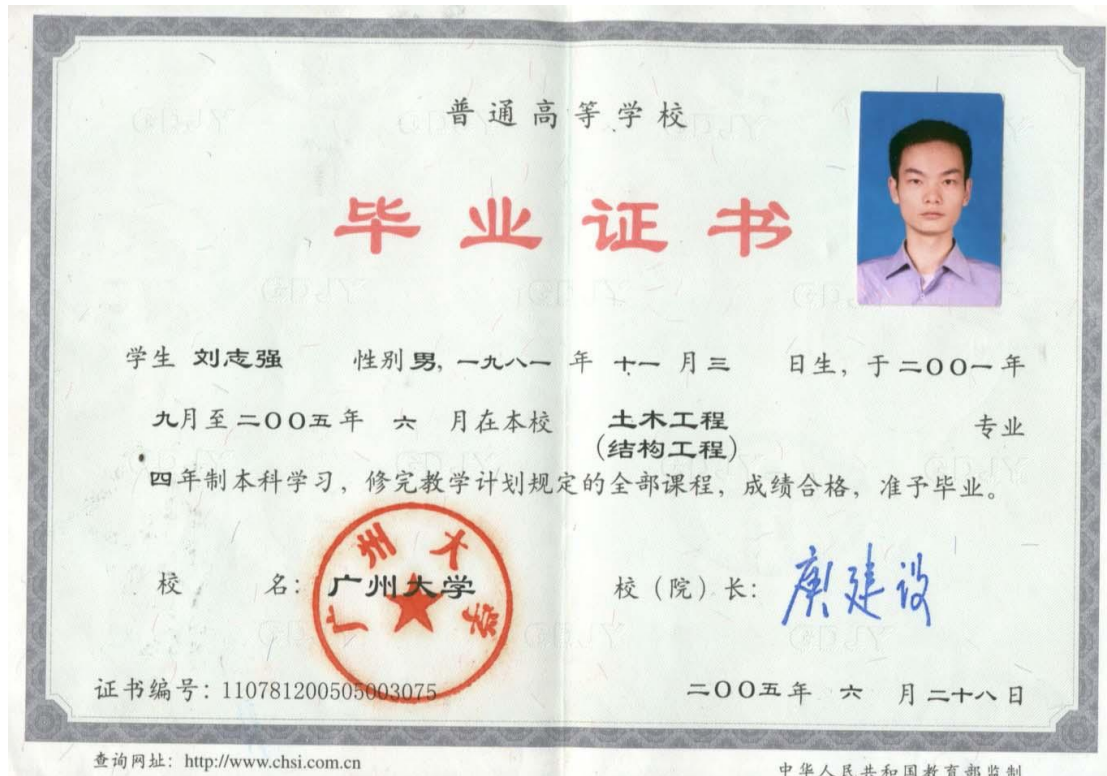 普通高等学校
毕业证书
学生 刘志强 性别 男, 一九八一 年 十一 月 三 日生, 于二〇〇一年
九月至二〇〇五年 六 月在本校 土木工程 专业
(结构工程)
四年制本科学习, 修完教学计划规定的全部课程, 成绩合格, 准予毕业。
广州大学
校 名: 广州大学 校(院)长: 庾建设
证书编号: 110781200505003075 二〇〇五年 六 月二十八日
查询网址: http://www.chsi.com.cn 中华人民共和国教育部监制